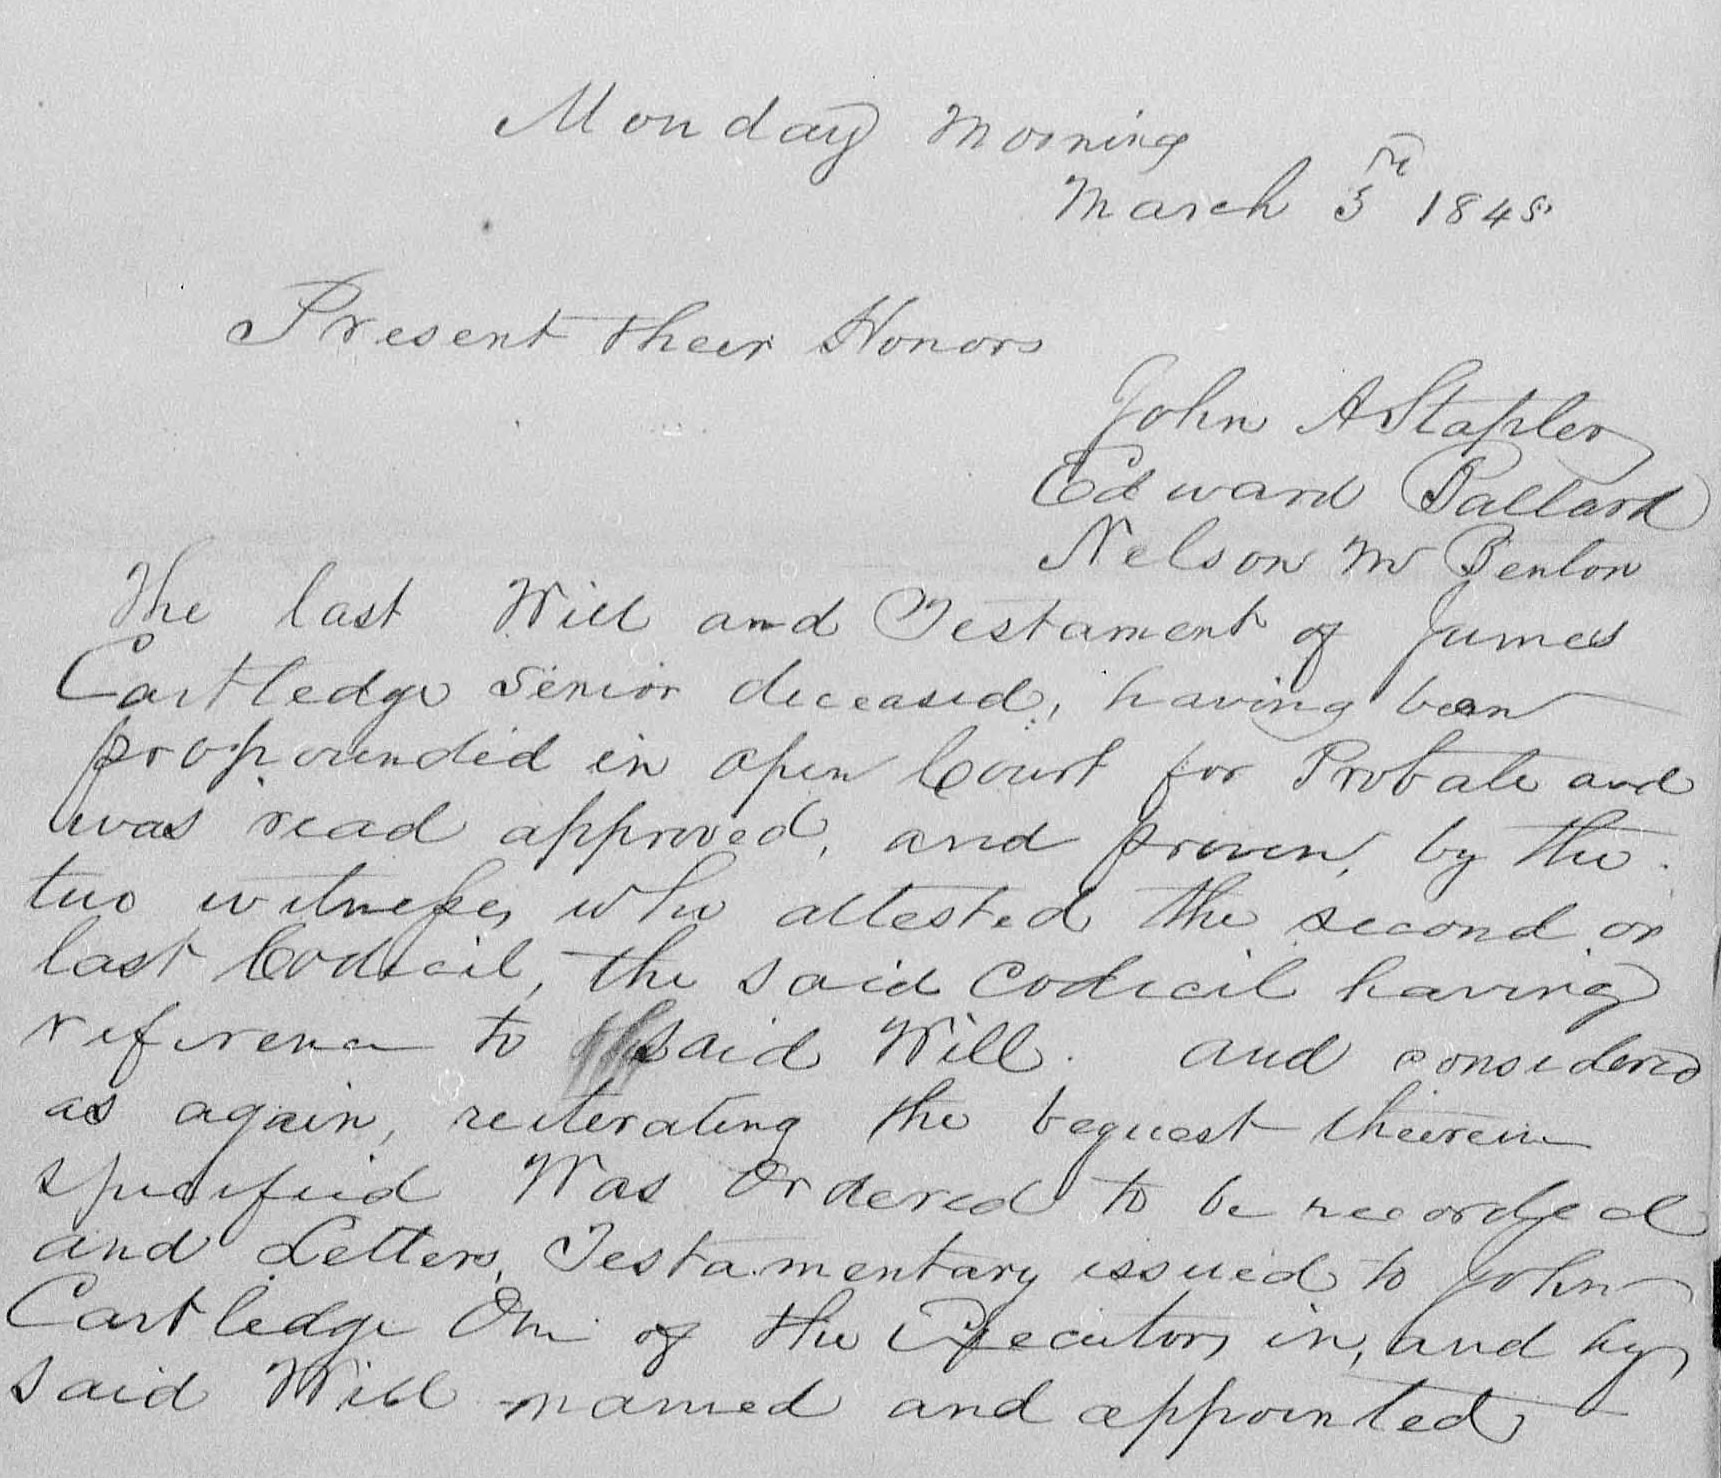 Monday Morning
March 3rd 1845
Present their Honors
John A Stapler
Edward Ballard
Nelson M Benton
The last Will and Testament of James
Cartledge Senior deceased, having been
propounded in open Court for Probate and
was read approved, and proven, by the
two witnesses, who attested the second or
last Codicil, the said Codicil having
reference to said Will. and considered
as again, reiterating the bequest therein
specified Was Ordered to be recorded
and Letters, Testamentary issued to John
Cartledge One of the Executors in, and by
said Will named and appointed